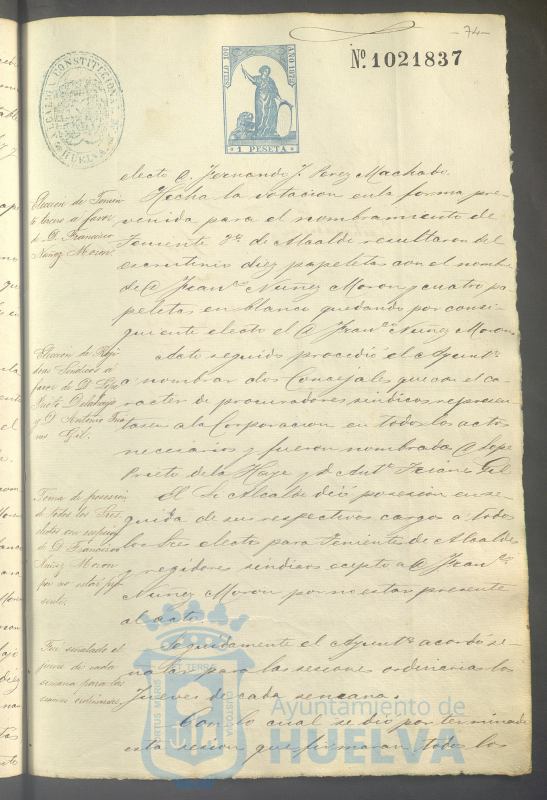 -74-
Nº 1021837
ALCALDIA CONSTITUCIONAL DE HUELVA
SELLO 10º AÑO 1872
1 PESETA
electo D. Fernando J. Perez Machado.
Hecha la votacion en la forma pre-
venida para el nombramiento de
Teniente 3º de Alcalde resultaron del
escrutinio diez papeletas con el nombre
de D. Franco Nuñez Moron y cuatro pa-
peletas en blanco quedando por consi-
guiente electo el D. Franco Nuñez Moron
Acto seguido procedio el Ayunto
a nombrar dos Concejales que con el ca-
racter de procuradores sindicos represen-
tasen a la Corporacion en todos los actos
necesarios y fueron nombrados D. Lope
Prieto de la Haya y D. Anto Gil
El Sr Alcalde dió posesion en se-
guida de sus respectivos cargos á todos
los tres electos para Tenientes de Alcalde
y regidores sindicos ecepto a D. Franco
Nuñez Moron por no estar presente
al acto.
Seguidamente el Ayunto acordó se-
ñalar para las sesiones ordinarias los
Jueves de cada semana.
Con lo cual se dio por terminada
esta sesion que firmaran todos los
Eleccion de Tenien-
te tercero a favor
de D. Francisco
Nuñez Moron
Eleccion de Regi-
dores Sindicos á
favor de D. Lope
Prieto de la Haya
y D. Antonio
Gil.
Toma de posesion
de todos los
electos con escepcion
de D. Francisco
Nuñez Moron
por no estar pre-
sente.
Fué señalado el
jueves de cada
semana para las
sesiones ordinarias.
PORTUS MARIS ET TERRE CUSTODIA
Ayuntamiento de
HUELVA